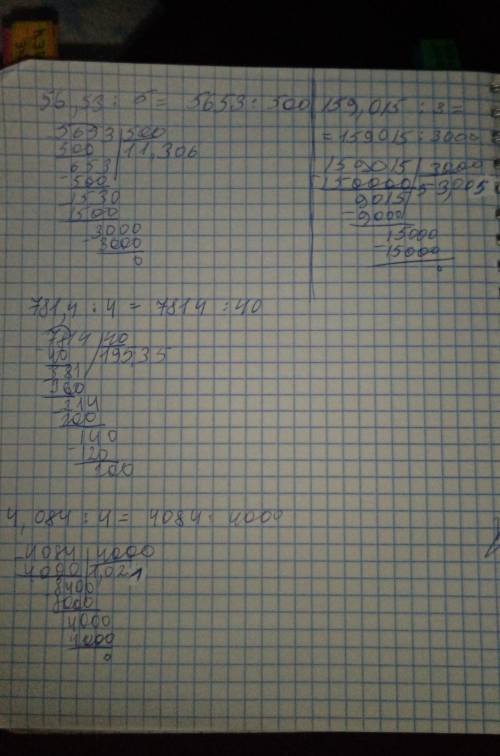 56,53 : 5 = 5653 : 500
5653 | 500
500 | 11,306
653
- 500
1530
1500
3000
- 3000
0
159,015 : 3 =
= 159015 : 3000
159015 | 3000
- 150000 53,005
9015
- 9000
15000
- 15000
0
781,4 : 4 = 7814 : 40
7814 | 40
- 40 | 195,35
381
360
214
200
140
- 120
200
4,084 : 4 = 4084 : 4000
- 4084 | 4000
4000 | 1,021
8400
8000
4000
4000
0